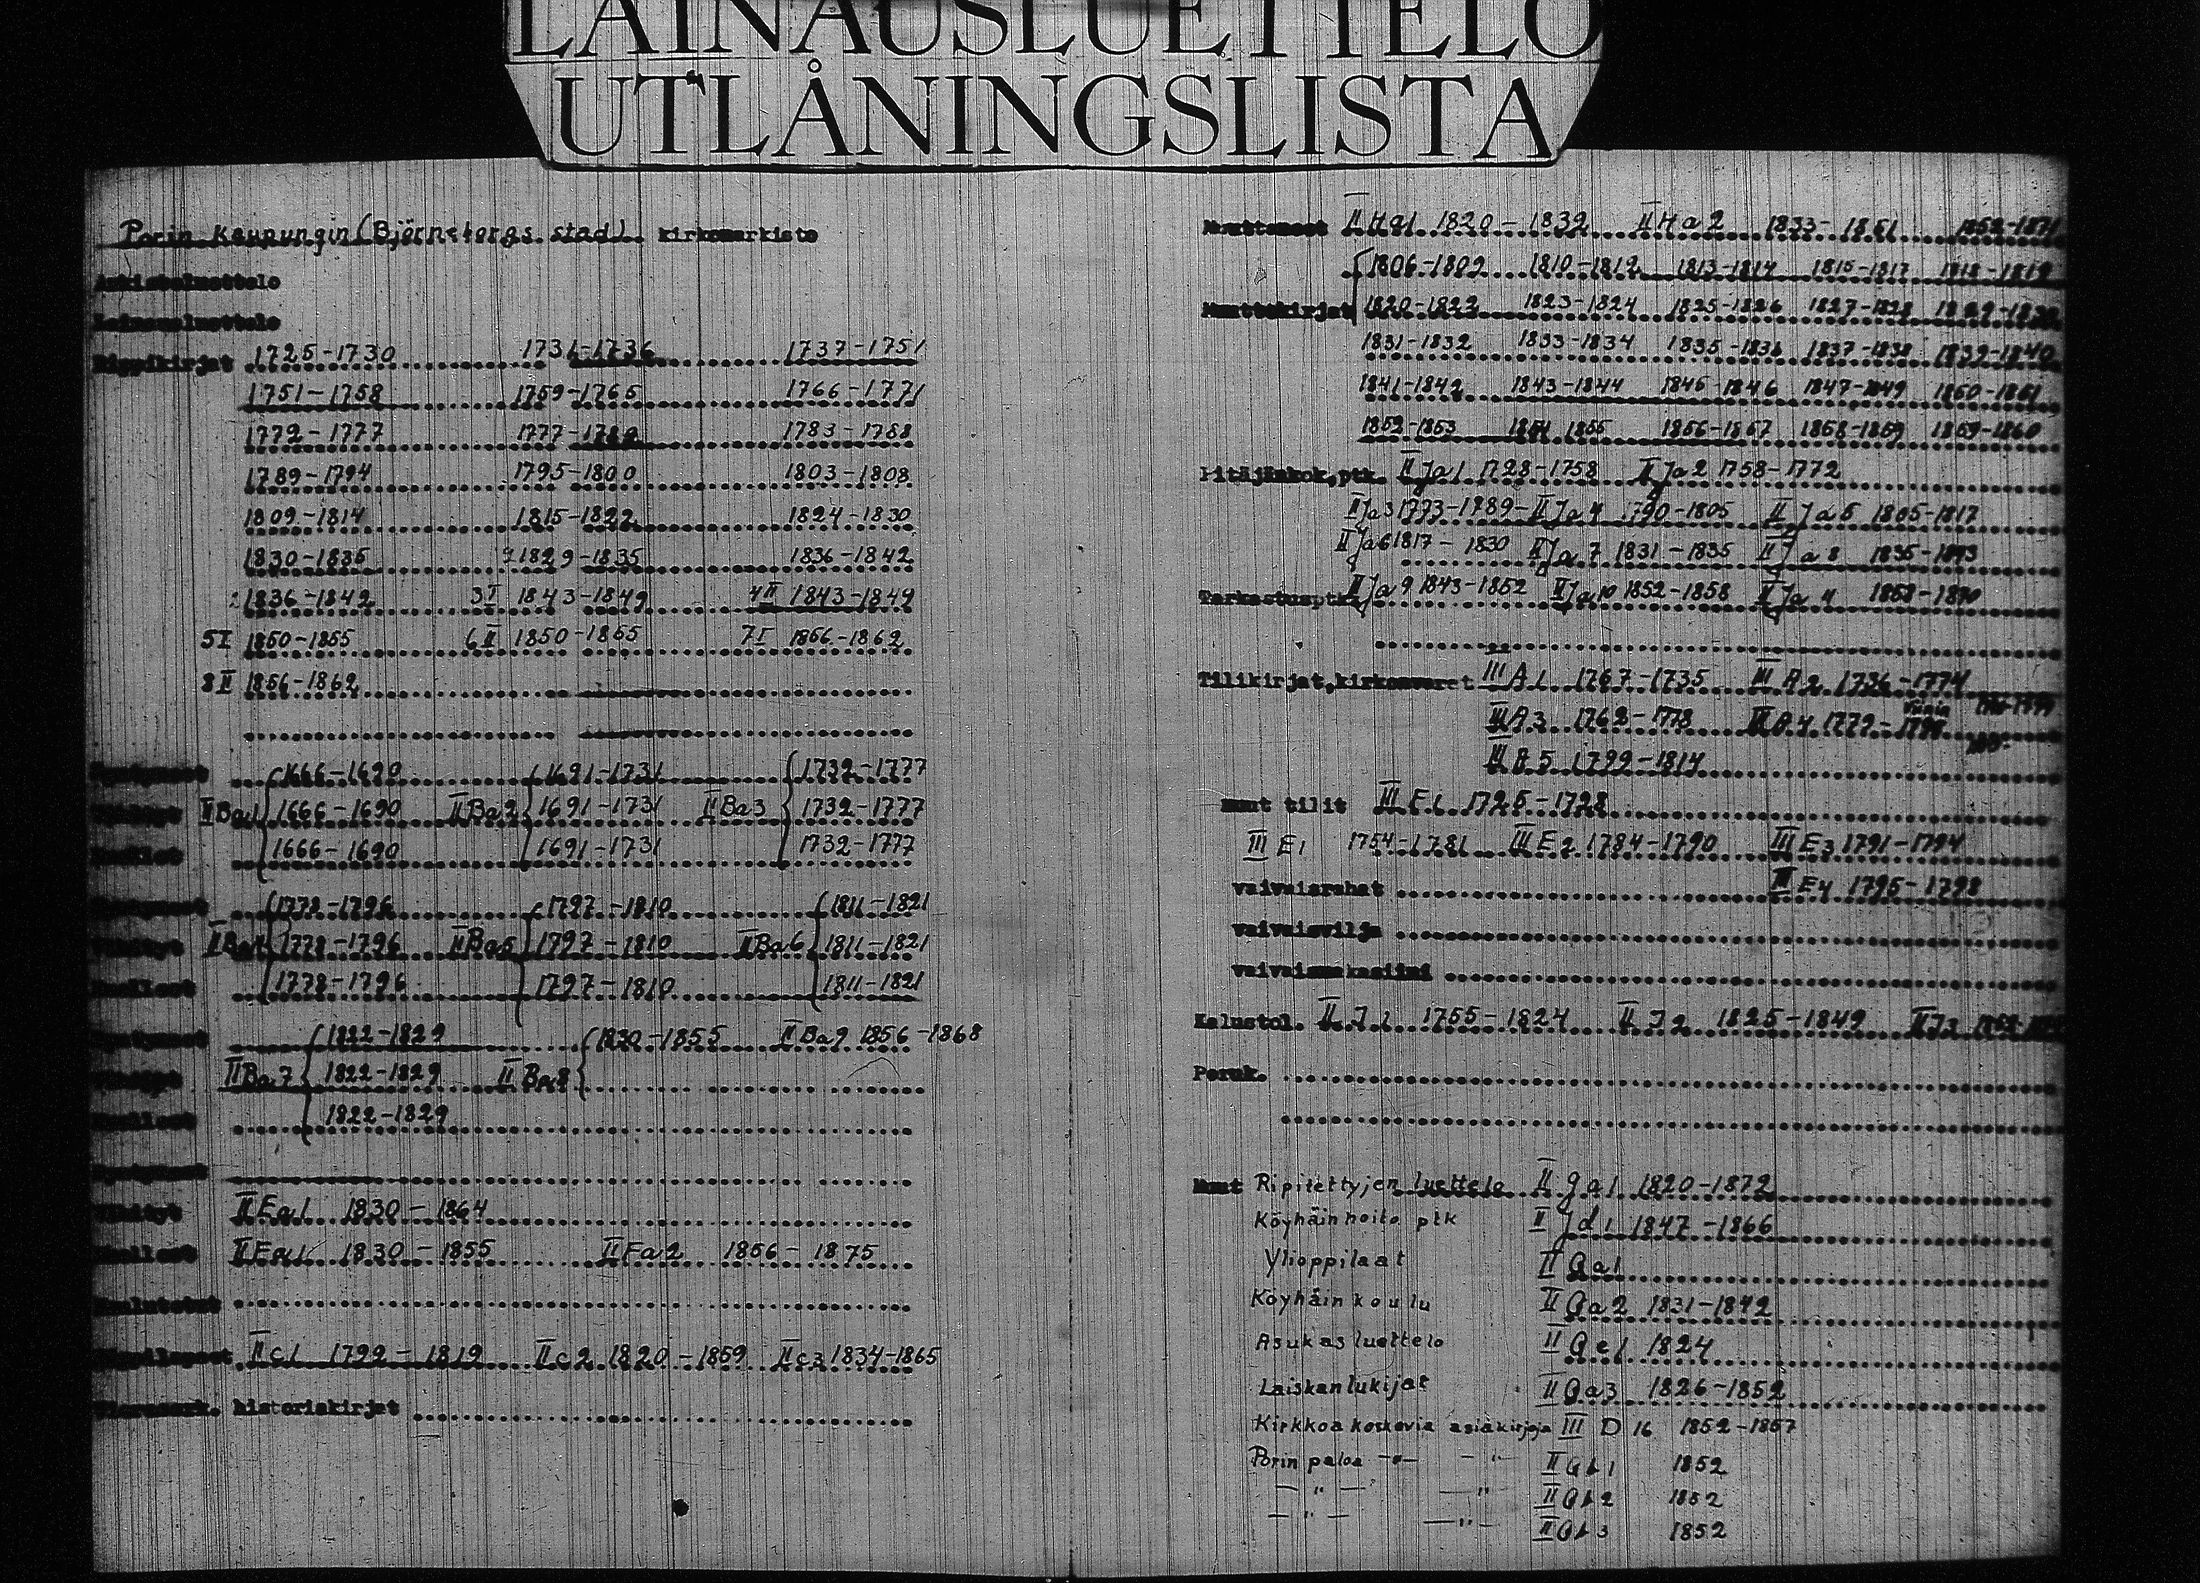 LAINAUSLUETTELO
UTLÅNINGSLISTA
Porin Kaupungin (Björneborgs stad) kirkonarkisto
Arkistoluettelo
Lainausluettelo
Rippikirjat 1725-1730 1731-1736 1737-1751
1751-1758 1759-1765 1766-1771
1772-1777 1777-1782 1783-1788
1789-1794 1795-1800 1803-1808
1809-1814 1815-1822 1824-1830
1830-1835 1829-1835 1836-1842
2 1836-1842 3I 1843-1849 4II 1843-1849
5I 1850-1855 6II 1850-1855 7I 1856-1862
8II 1856-1862
Syntyneet 1666-1690 1691-1731 1732-1777
Vihityt II Ba1 1666-1690 II Ba2 1691-1731 II Ba3 1732-1777
Kuolleet 1666-1690 1691-1731 1732-1777
Syntyneet 1778-1796 1797-1810 1811-1821
Vihityt II Ba4 1778-1796 II Ba5 1797-1810 II Ba6 1811-1821
Kuolleet 1778-1796 1797-1810 1811-1821
Syntyneet 1822-1829 1830-1855 II Ba9 1856-1868
Vihityt II Ba7 1822-1829 II Ba8
Kuolleet 1822-1829
Syntyneet
Vihityt II Ea1 1830-1864
Kuolleet II Fa1 1830-1855 II Fa2 1856-1875
Kuulutetut
II c1 1799-1819 II c2 1820-1859 II c3 1834-1865
historiakirjat
Muuttaneet II Ha1 1820-1832 II Ha2 1833-1851 1852-1871
1806-1809 1810-1812 1813-1814 1815-1817 1818-1819
Muuttokirjat 1820-1822 1823-1824 1825-1826 1827-1828 1829-1830
1831-1832 1833-1834 1835-1836 1837-1838 1839-1840
1841-1842 1843-1844 1845-1846 1847-1849 1850-1851
1852-1853 1854 1855 1856-1857 1858-1859 1859-1860
Pitäjänkok.ptk. II Ja1 1728-1758 II Ja2 1758-1772
II Ja3 1773-1789 II Ja4 1790-1805 II Ja5 1805-1817
II Ja6 1817-1830 II Ja7 1831-1835 II Ja8 1835-1843
Tarkastusptk. II Ja9 1843-1852 II Ja10 1852-1858 II Ja 11
Tilikirjat, kirkonvarat III A1 1767-1735 III A2 1736-1774
III A3 1762-1778 III A4 1779-
III A5 1799-1814
muut tilit III E1 1725-1728
III E1 1754-1781 III E2 1784-1790 III E3 1791-1794
vaivaisrahat III E4 1795-1798
vaivaisvilja
vaivaismakasiini
Kalustol. II J1 1755-1824 II J2 1825-1849 II J3
Peruk.
Muut Ripitettyjen luettelo II ga1 1820-1872
Köyhäinhoito ptk II Jd1 1847-1866
Ylioppilaat II Ga1
Köyhäinkoulu II Ga2 1831-1842
Asukasluettelo II Ge1 1824
Laiskanlukijat II Ga3 1826-1852
Kirkkoa koskevia asiakirjoja III D 16 1852-1857
Porin paloa -"- -"- II Gb1 1852
-"- -"- II Gb2 1852
-"- -"- II Gb3 1852